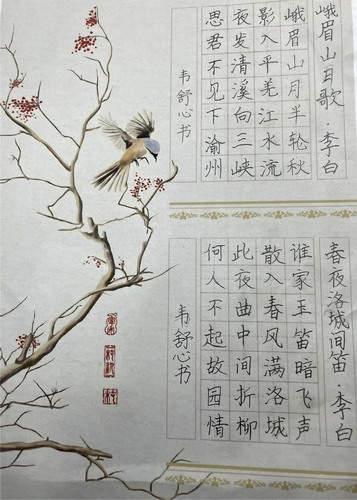 峨眉山月歌·李白
峨眉山月半轮秋
影入平羌江水流
夜发清溪向三峡
思君不见下渝州
韦舒心书
春夜洛城间笛·李白
谁家玉笛暗飞声
散入春风满洛城
此夜曲中间折柳
何人不起故园情
韦舒心书